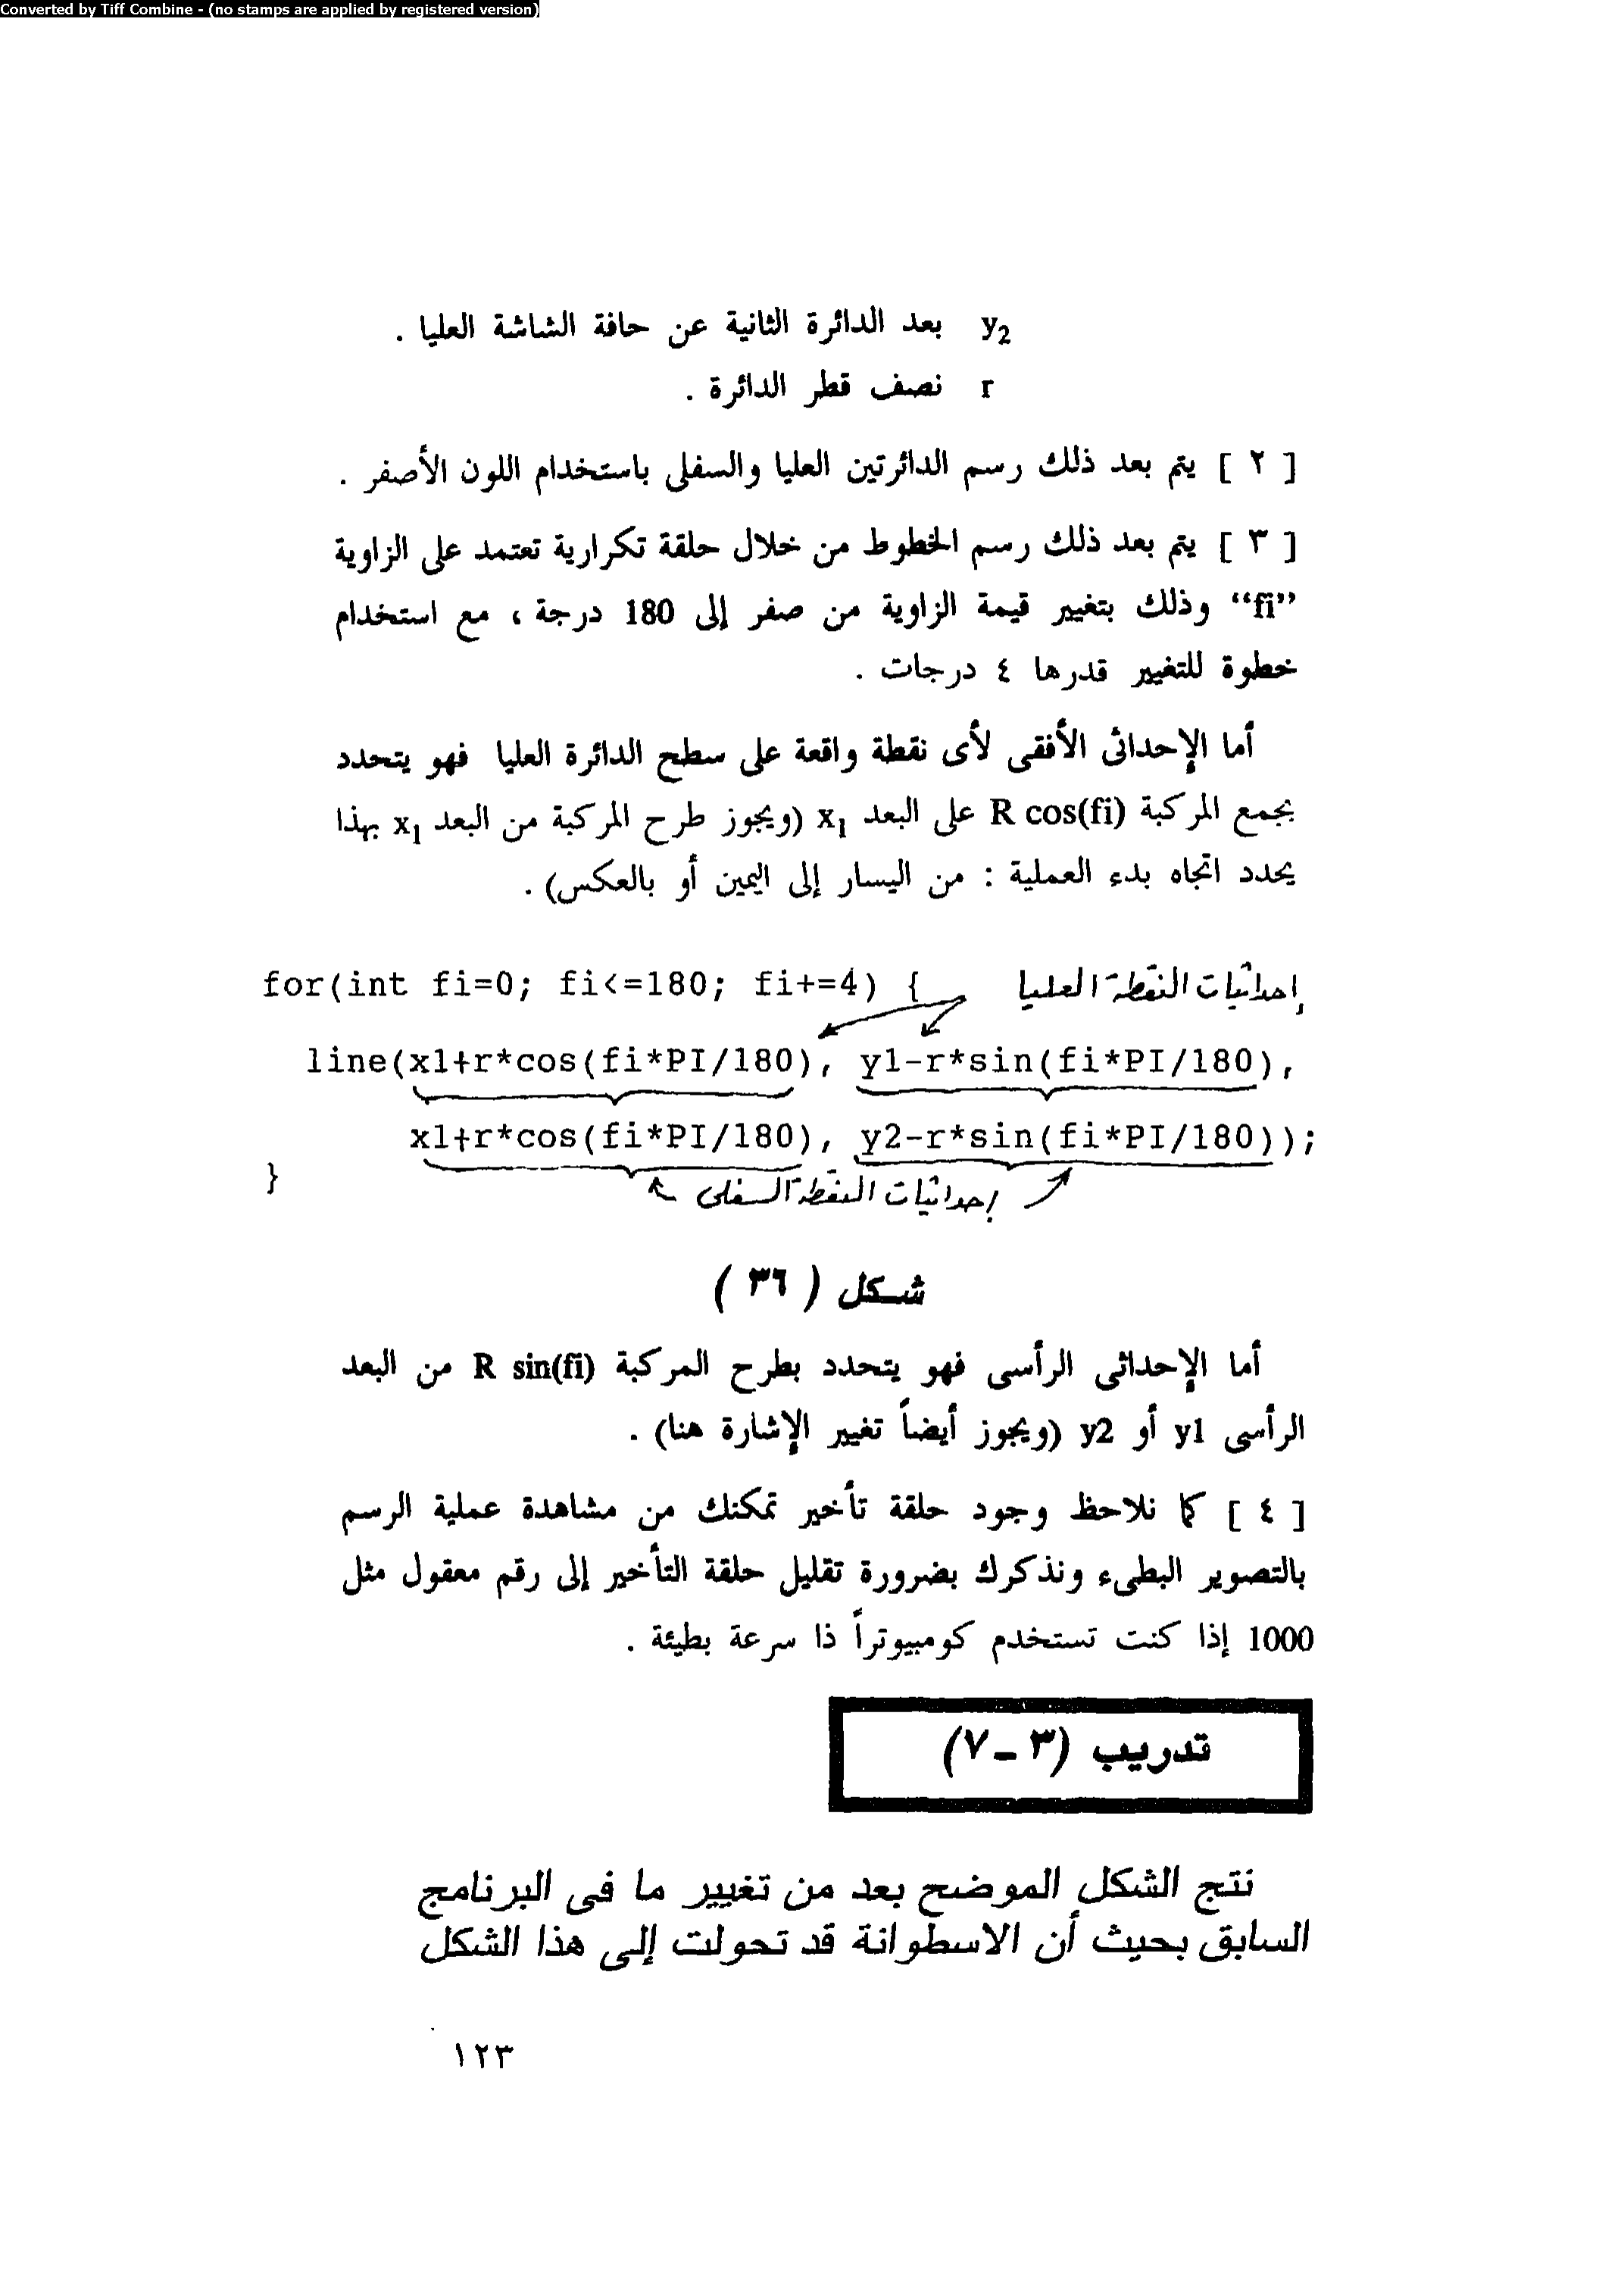 Converted by Tiff Combine - (no stamps are applied by registered version)
y2 بعد الدائرة الثانية عن حافة الشاشة العليا .
r نصف قطر الدائرة .
[ ٢ ] يتم بعد ذلك رسم الدائرتين العليا والسفلى باستخدام اللون الأصفر .
[ ٣ ] يتم بعد ذلك رسم الخطوط من خلال حلقة تكرارية تعتمد على الزاوية
“fi” وذلك بتغيير قيمة الزاوية من صفر إلى 180 درجة ، مع استخدام
خطوة للتغيير قدرها ٤ درجات .
أما الإحداثى الأفقى لأى نقطة واقعة على سطح الدائرة العليا فهو يتحدد
بجمع المركبة R cos(fi) على البعد x1 (ويجوز طرح المركبة من البعد x1 بهذا
يحدد اتجاه بدء العملية : من اليسار إلى اليمين أو بالعكس) .
for(int fi=0; fi<=180; fi+=4) { إحداثيات النقطة العليا
line(x1+r*cos(fi*PI/180), y1-r*sin(fi*PI/180),
x1+r*cos(fi*PI/180), y2-r*sin(fi*PI/180));
}
إحداثيات النقطة السفلى
شكل ( ٣٦ )
أما الإحداثى الرأسى فهو يتحدد بطرح المركبة R sin(fi) من البعد
الرأسى y1 أو y2 (ويجوز أيضاً تغيير الإشارة هنا) .
[ ٤ ] كما نلاحظ وجود حلقة تأخير تمكنك من مشاهدة عملية الرسم
بالتصوير البطىء ونذكرك بضرورة تقليل حلقة التأخير إلى رقم معقول مثل
1000 إذا كنت تستخدم كومبيوتراً ذا سرعة بطيئة .
تدريب (٣ - ٧)
نتج الشكل الموضح بعد من تغيير ما فى البرنامج
السابق بحيث أن الاسطوانة قد تحولت إلى هذا الشكل
١٢٣